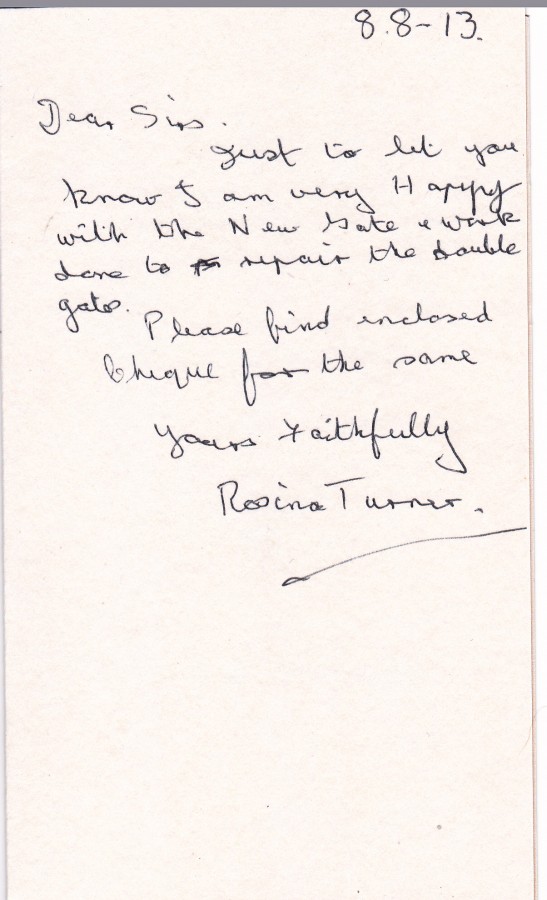 8.8-13.
Dear Sirs.
Just to let you
know I am very Happy
with the New Gate & work
done to repair the double
gate.
Please find enclosed
Cheque for the same
Yours Faithfully
Rosina Turner.